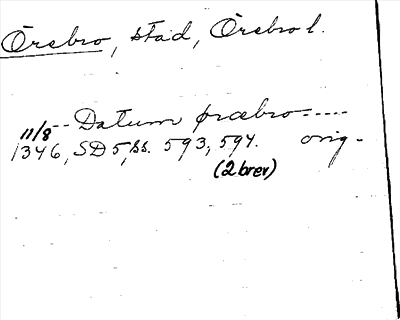 Örebro, stad, Örebro l.
11/8 -- Datum œrebro-----
1346, SD 5, ss. 593, 594. orig -
(2 brev)